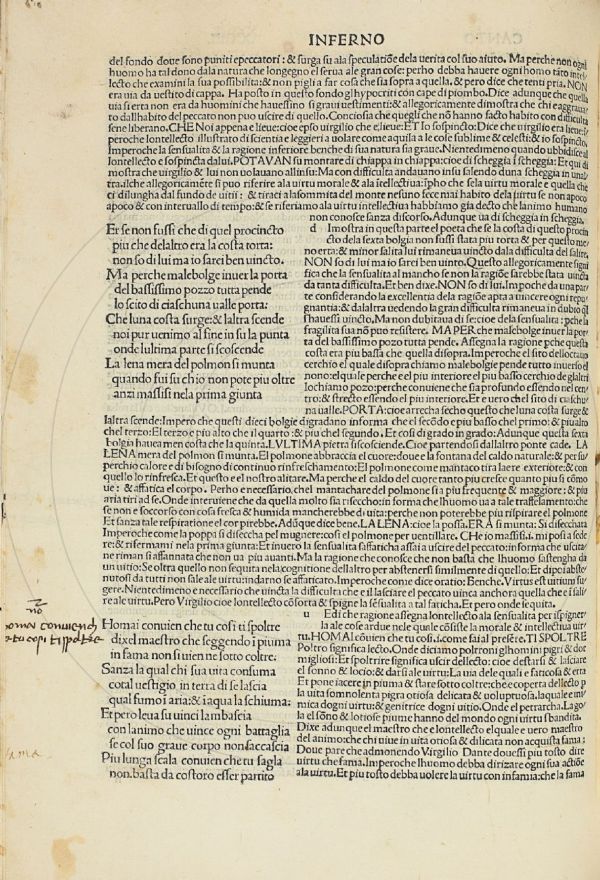 INFERNO
del fondo doue sono puniti epeccatori: & surga su ala speculatiõe dela uerita col suo aiuto. Ma perche non ogni
huomo ha tal dono dala natura che longegno el serua ale gran cose: perho debba hauere ogni homo tãto intel
lecto che examini la sua possibilita: & non pigli a far cosa che sia sopra a quella. & pero dice che tenu pria. NON
era uia da uestito di cappa. Ha posto in questo fondo gl hypocriti con cape di piombo. Dice adunque che quella
uia si erta non era da huomini che hauessino si graui uestimenti: & allegoricamente dimostra che chi e aggraua
to dallhabito del peccato non puo uscire di quello. Conciosia che quegli che nõ hanno facto habito con difficulta
sene liberano. CHE Noi appena e lieue: cioe epso uirgilio che e lieue: ET Io sospincto: Dice che uirgilio era lieue:
peroche lontellecto illustrato di scientia e leggieri a uolare come aquila a le cose sublime & celesti: & io sospincto.
Imperoche la sensualita & la ragione inferiore benche di sua natura sia graue. Nientedimeno quando ubbidisce al
lontellecto e sospincta da lui. POTAVAN su montare di chiappa in chiappa: cioe di scheggia ĩ scheggia: Et qui di
mostra che uirgilio & lui non uolauano allinsu: Ma con difficulta andauano insu salendo duna scheggia in unal
tra. ilche allegoricamẽte si puo riferire ala uirtu morale & ala ĩtellectiua: ĩpho che se la uirtu morale e quella che
ci dilungha dal fundo de uitii: & tiraci ala sommita del monte nesuno sece mai habito dela uirtu se non apoco
apoco & con interuallo di tempo: & se riferiamo ala uirtu intellectiua habbiamo gia decto che lanimo humano
non conosce sanza discorso. Adunque ua di scheggia in scheggia.
Et se non fussi che di quel procincto
piu che delaltro era la costa torta:
non so di lui ma io sarei ben uincto.
Ma perche malebolge inuer la porta
del bassissimo pozzo tutta pende
lo scito di ciaschuna ualle porta:
Che luna costa surge: & laltra scende
noi pur uenimo al fine in su la punta
onde lultima parte si scoscende
La lena mera del polmon si munta
quando fui su ch io non pote piu oltre
anzi massisti nela prima giunta
d Imostra in questa parte el poeta che se la costa di questo pro
cincto dela sexta bolgia non fussi stata piu torta & per questo me
no erta: & minor salita lui rimaneua uincto dala difficulta del salire.
NON so di lui ma io sarei ben uinto. Questo allegoricamente signi
fica che la sensualita al mancho se non la ragiõe sarebbe stata uincta
da tanta difficulta. Et ben dixe. NON so di lui. Impoche da una par
te considerando la excellentia dela ragiõe apta a uincere ogni repu
gnantia: & dalaltra uedendo la gran difficulta rimaneua in dubio ql
lhauessi uincto. Ma non dubitaua di se: cioe dela sensualita: pche la
fragilita sua nõ puo resistere. MA PER che malebolge inuer la por
ta del bassissimo pozo tutta pende. Assegna la ragione pche questa
costa era piu bassa che quella disopra. Imperoche el sito dellottauo
cerchio el quale disopra chiamo malebolgie pende tutto inuerso el
nono: el quale perche e el piu inferiore el piu basso cerchio de glaltri
lochiamo pozo: perche conuiene che sia profundo essendo nel cen
tro: & strecto essendo el piu interiore. Et e uero chel sito di ciaschu
na ualle. PORTA: cioe arrecha secho questo che luna costa surge &
laltra scende: Impero che questi dieci bolgie digradano informa che el secõdo e piu basso chel primo: & piu alto
chel terzo: El terzo e piu alto che il quarto: & piu chel segundo. Et cosi di grado in grado: Adunque questa sexta
bolgia haueua men costa che la quinta. LVLTIMA pietra si scoscende. Cioe partendosi dallaltro ponte cade. LA
LENA mera del polmon si munta. El polmone abbraccia el cuore: doue e la fontana del caldo naturale: & per su
perchio calore e di bisogno di continuo rinfreschamento: El polmone come mantaco tira laere exteriore: & con
quello lo rinfresca. Et questo e el nostro alitare. Ma perche el caldo del cuore tanto piu cresce quanto piu si cõmo
ue: & affatica el corpo. Perho e necessario, chel mantachare del polmone sia piu frequente & maggiore: & piu
aria tiri ad se. Onde interuiene che da quella molto sia riseccho: in forma che lhuomo ua a tale traffelamento: che
se non e soccorso con cosa fresca & humida mancherebbe di uita: perche non poterebbe piu rispirare el polmone
Et sanza tale respiratione el cor pirebbe. Adũque dice bene. LA LENA: cioe la possa. ERA si munta: Si disecchata
Imperoche come la poppa si disecha pel mugnere: cosi el polmone per uentillare. CHe io massisi. i. mi posi a sede
re: & rifermami nela prima giunta: Et in uero la sensualita saffaticha assai a uscire del peccato: in forma che uscita
ne riman si affannata che non ua piu auanti. Ma la ragione che conosce che non basta che lhuomo sastengha da
un uitio: Se oltra quello non sequita nela cognitione dellaltro per abstenersi similmente di quello: Et dipoi abste
nutosi da tutti non sale ale uirtu: indarno se affaticato. Imperoche come dice oratio: Benche. Virtus est uitium fu
gere. Nientedimeno e necessario che uincta la difficulta e il lasciare el peccato uinca anchora quella che e ĩ sali
re ale uirtu. Pero Virgilio cioe lontellecto cõforta & spigne la sẽsualita a tal faticha. Et pero onde sequita.
Homai conuien che tu cosi ti spoltre
dixel maestro che seggendo i piuma
in fama non si uien ne sotto coltre.
Sanza la qual chi sua uita consuma
cotal uestigio in terra di se lascia
qual fumo ĩ aria: & ĩ aqua la schiuma:
Et pero leua su uinci lambascia
con lanimo che uince ogni battaglia
se col suo graue corpo non saccascia
Piu lunga scala conuien che tu sagla
non. basta da costoro esser partito
u Edi che ragione assegna lontellecto ala sensualita per ispigner
la ale cose ardue nele quale cõsiste la morale & intellectiua uir
tu. HOMAI cõuien che tu cosi. i. come fai al presẽte. TI SPOLTRE
Poltro significa lecto. Onde diciamo poltroni glhomini pigri & dor
migliosi: Et spoltrire significa uscir dellecto: cioe destarsi & lasciare
el sonno & locio: & darsi ale uirtu: La uia dele quali e famosa & erta
Et pone iacere in piuma & stare sotto coltre: che e coperta dellecto p
la uita somnolenta pigra otiosa delicata & uoluptuosa. laquale e inimica
dogni uirtu: & genitrice dogni uitio. Onde el petrarcha. La go
la el sõno & lotiose piume hanno del mondo ogni uirtu sbandita.
Dixe adunque el maestro che e lontellecto el quale e uero maestro
del animo: che chi uiue in uita otiosa & dilicata non acquista fama:
Doue pare che admonendo Virgilio Dante douessi piu tosto dire
uirtu che fama. Imperoche lhuomo debba dirizare ogni sua actiõe
ala uirtu. Et piu tosto debba uolere la uirtu con infamia: che la fama
omai conuiench
e tu cosi ti spoltre